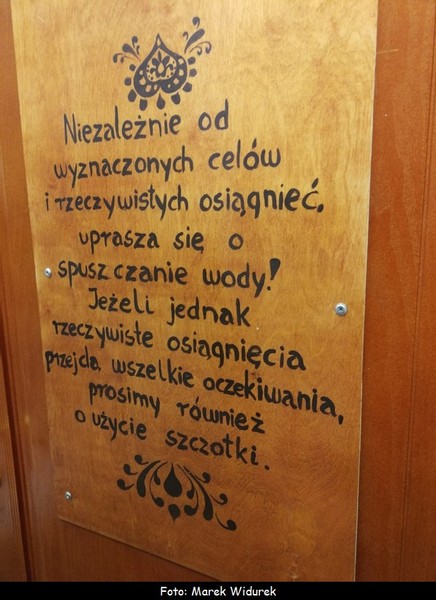 Niezależnie od
wyznaczonych celów
i rzeczywistych osiągnięć,
uprasza się o
spuszczanie wody!
Jeżeli jednak
rzeczywiste osiągnięcia
przejdą wszelkie oczekiwania,
prosimy również
o użycie szczotki.
Foto: Marek Widurek